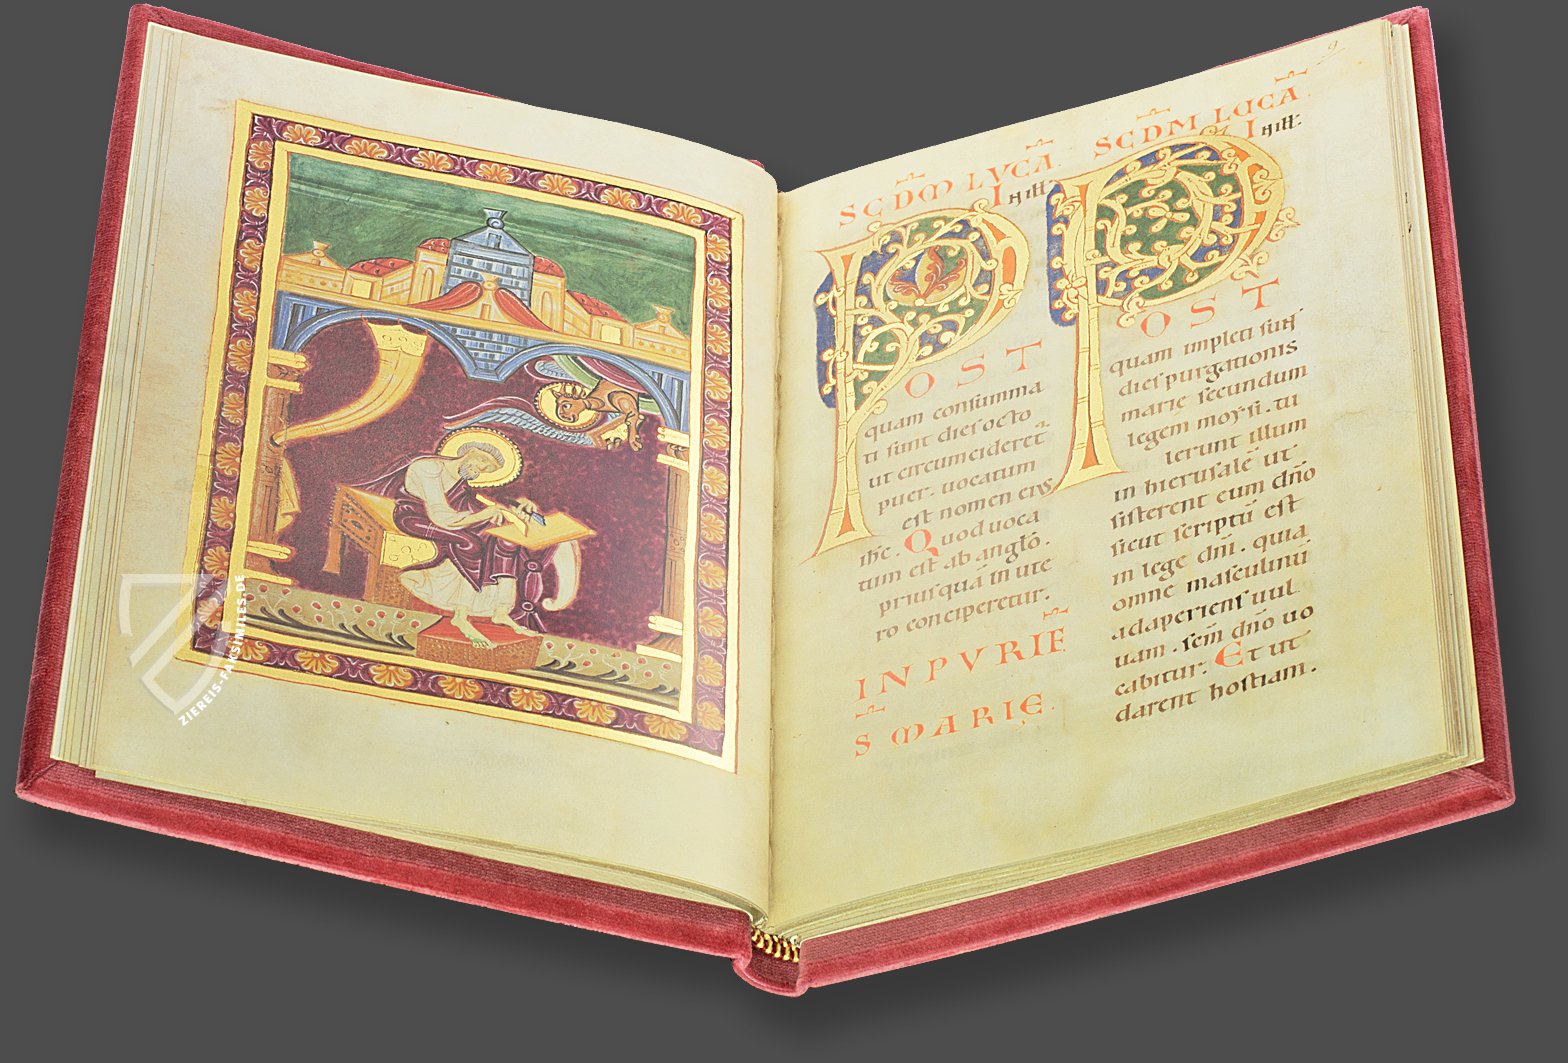 9
SCDM LVCA.
In ill.
POST
quam consumma
ti sunt dies octo
ut circumcideret
puer. uocatum
est nomen eius
ihc. Quod uoca
tum est ab anglo.
priusquā in ute
ro conciperetur.
IN PVRIF
S MARIE.
SCDM LUCA
In ill.
POST
quam impleti sunt
dies purgationis
marie secundum
legem moysi. tu
lerunt illum
in hierusalē ut
sisterent eum dño
sicut scriptū est
in lege dñi. quia
omne masculinū
adaperiens uul
uam. scm̄ dño uo
cabitur. Et ut
darent hostiam.
ZIEREIS-FAKSIMILES.DE